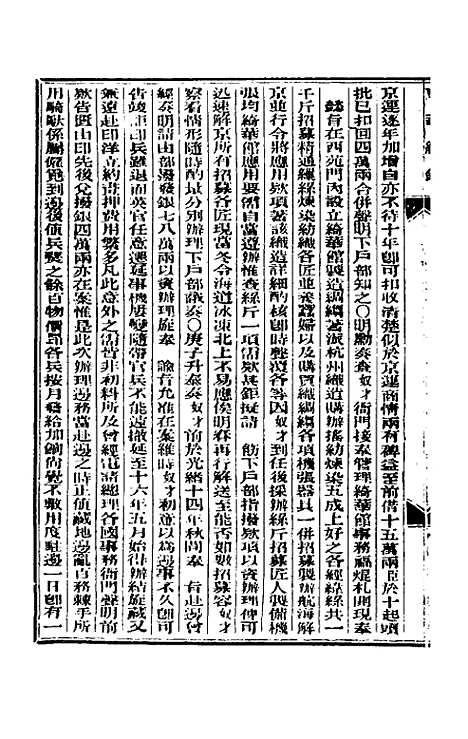 京運逐年加增自亦不待十年卽可扣收清楚似於京運商情兩有裨益至前借十五萬兩臣於十起頭
批已扣回四萬兩合併聲明下戶部知之〇明勳奏 奴才衙門接奉管理綺華館事務福焜札開現奉
懿旨在西苑門內設立綺華館製造綢緞著派杭州織造購辦搖紡煉染五成上好之各經緯絲共一
千斤招募精通經緯煉染紡織各匠並養蠶婦以及購買織綢緞各項機張器具一併招募製辦航海解
京並行令將應用款項著該織造詳細酌核卽時墊造各等因 奴才到任後採辦絲斤招募匠人製備機
張均綺華館應用要需自當遵辦惟查絲斤一項需款甚鉅擬請 飭下戶部指撥款項以資辦理俾可
迅速解京所有招募各匠現當冬令海道冰凍北上不易應俟明春再行送至能否如數招募容 奴才
察看情形隨時酌量分別辦理下戶部議奏〇庚子升泰奏 奴才前於光緒十四年秋間奉 旨赴邊曾
經奏明請由部撥發銀七八萬兩以資辦理旋奉 諭旨允准在案維時 奴才意以為邊事不久卽可
告竣詎印兵雖退而英官任意遷延事機屢變隨帶官兵不能遠撤延至十六年五月始得辦結旋藏又
奏遠赴印洋立約書押費用繁多凡此意外之需皆非初料所及曾經電請總理各國事務衙門聲明前
款皆既由印先後兌撥銀四萬兩亦在案惟是此次辦理邊務當赴邊之時正值藏地邊亂百務棘手所
用騎馱係屬僱覓到邊後值兵燹之餘百物價昂各兵按月發給加餉尚覺不敷用度駐邊一日卽有一